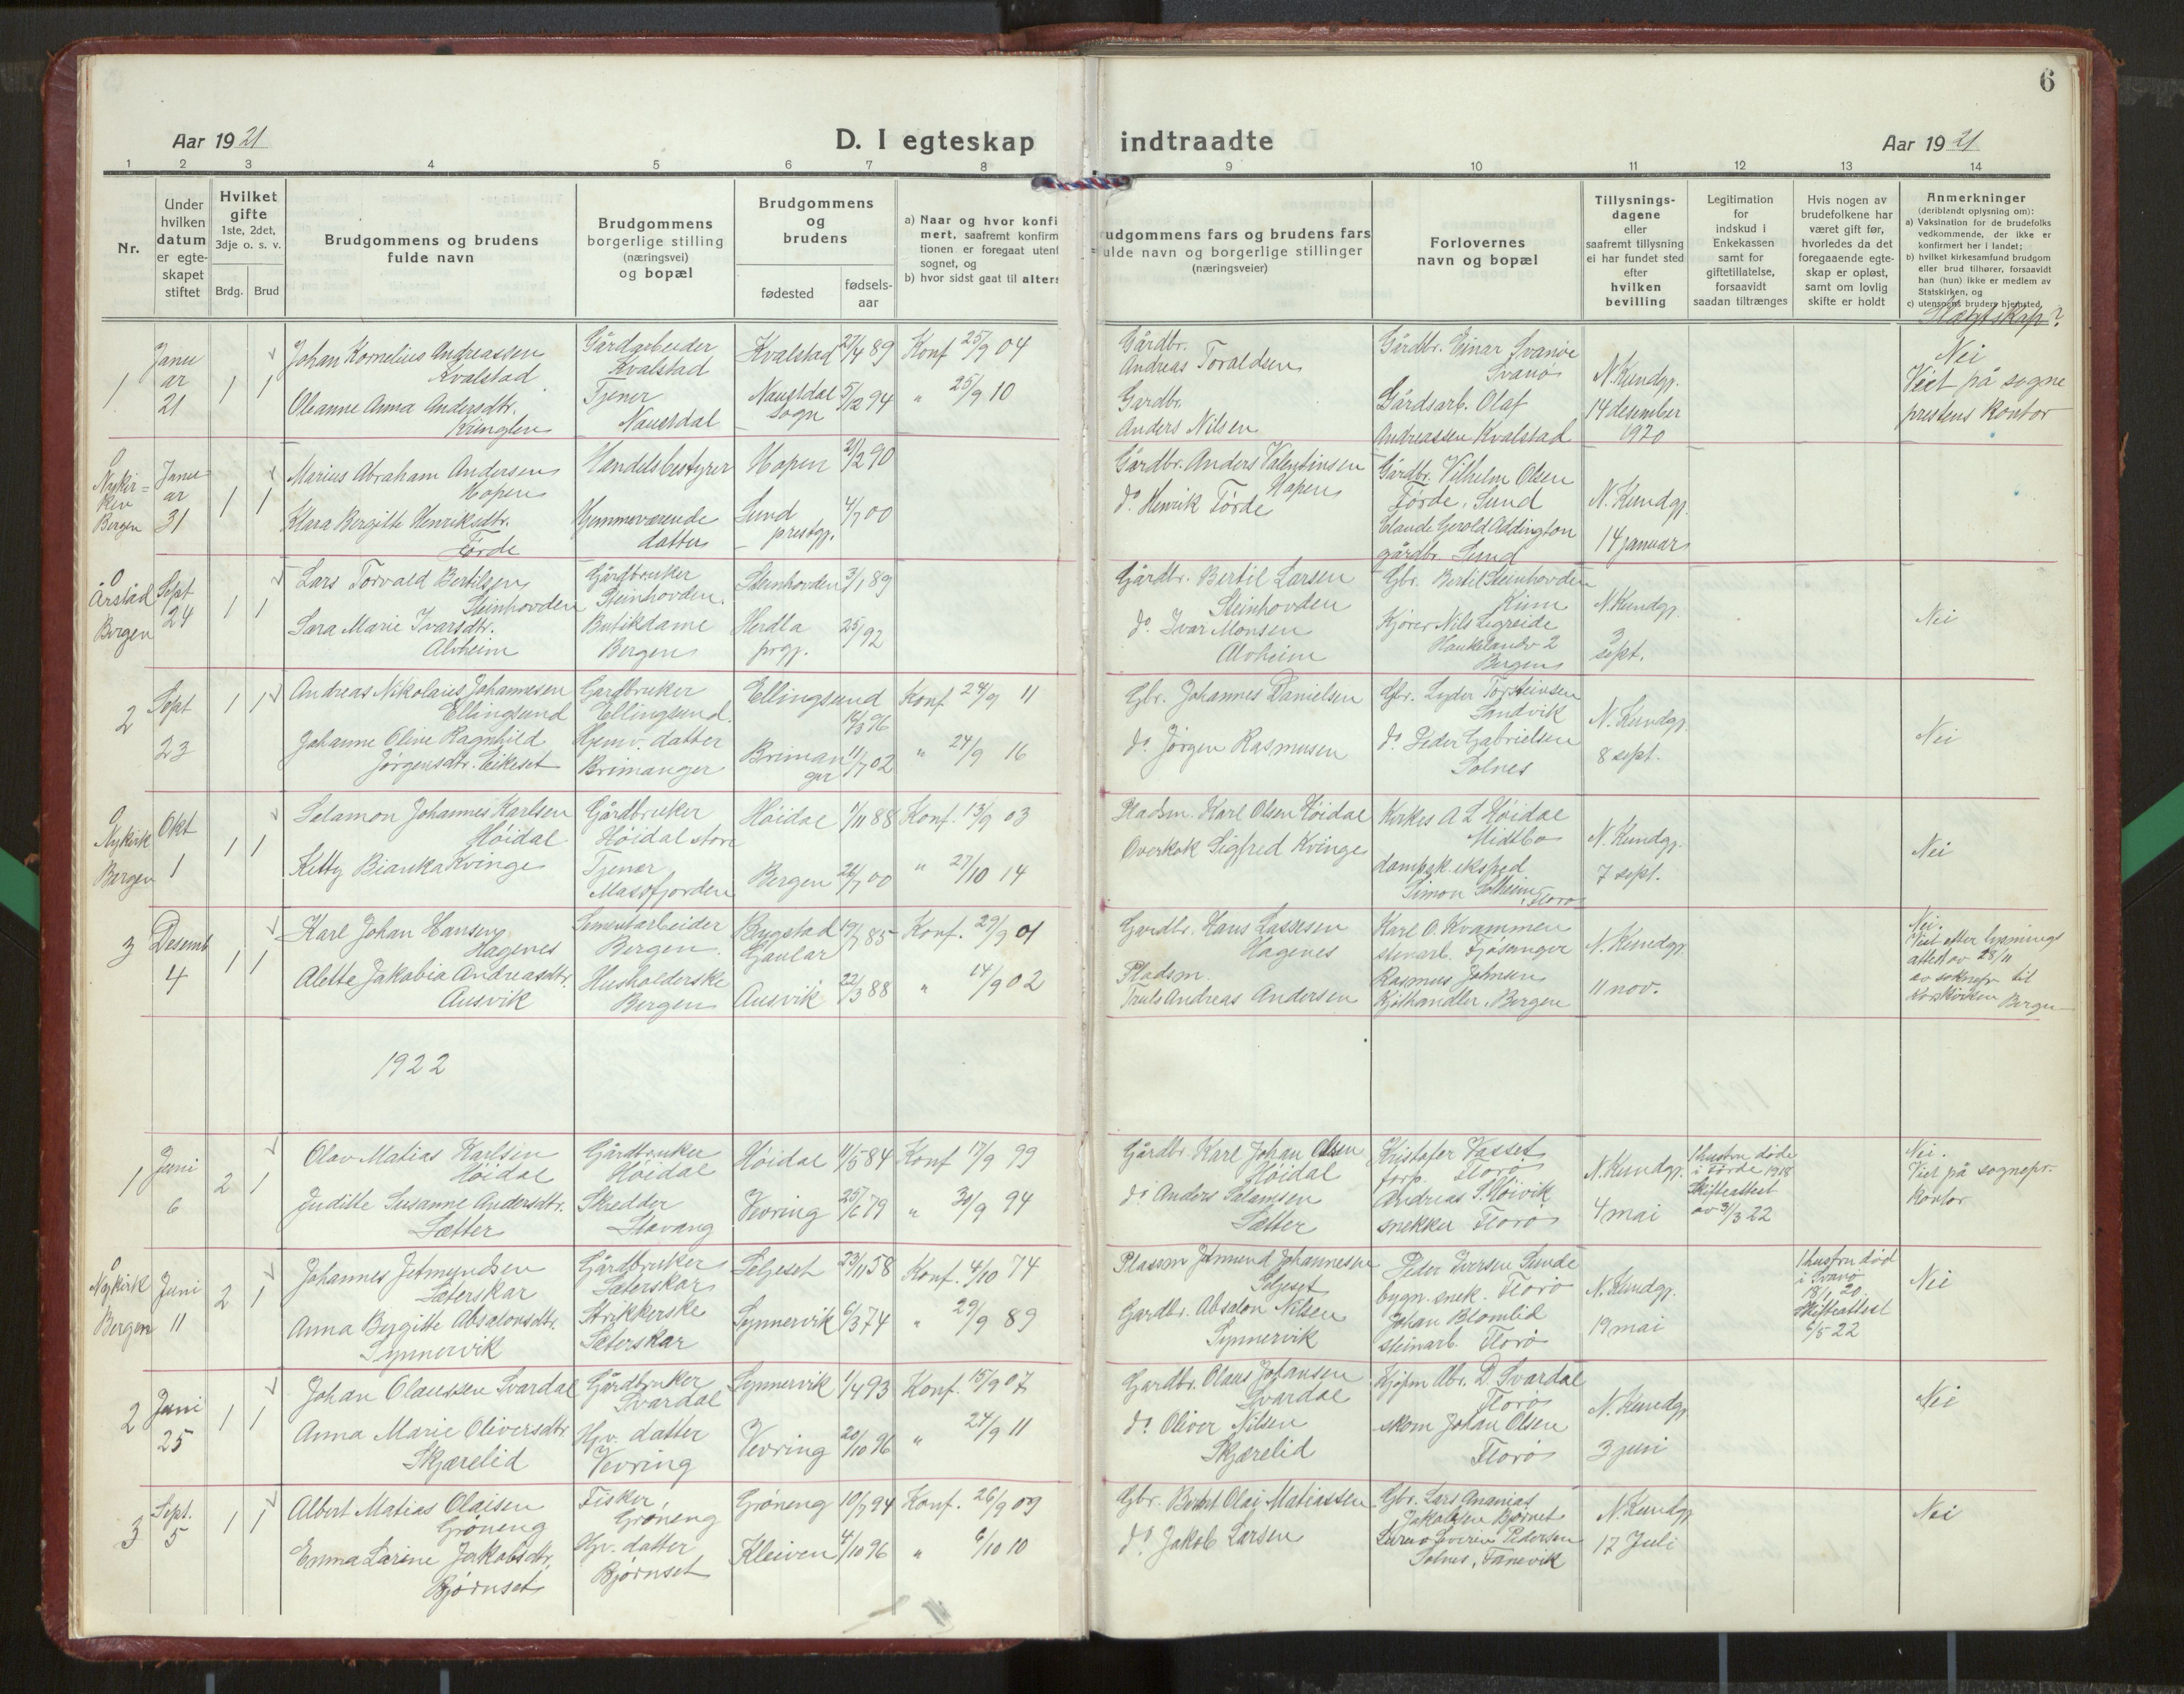 6
Aar 1921
D. I egteskap
indtraadte
Aar 1921
1 2 3 4 5 6 7 8 9 10 11 12 13 14
Nr.
Under
hvilken
datum
er egte-
skapet
stiftet
Hvilket
gifte
1ste, 2det,
3dje o. s. v.
Brdg. Brud
Brudgommens og brudens
fulde navn
Brudgommens
borgerlige stilling
(næringsvei)
og bopæl
Brudgommens
og
brudens
fødested
fødsels-
aar
a) Naar og hvor konfi
mert, saafremt konfirm
tionen er foregaat utenf
sognet, og
b) hvor sidst gaat til alters
udgommens fars og brudens fars
ulde navn og borgerlige stillinger
(næringsveier)
Forlovernes
navn og bopæl
Tillysnings-
dagene
eller
saafremt tillysning
ei har fundet sted
efter
hvilken
bevilling
Legitimation
for
indskud i
Enkekassen
samt for
giftetillatelse,
forsaavidt
saadan tiltrænges
Hvis nogen av
brudefolkene har
været gift før,
hvorledes da det
foregaaende egte-
skap er opløst,
samt om lovlig
skifte er holdt
Anmerkninger
(deriblandt oplysning om):
a) Vaksination for de brudefolks
vedkommende, der ikke er
konfirmert her i landet;
b) hvilket kirkesamfund brudgom
eller brud tilhører, forsaavidt
han (hun) ikke er medlem av
Statskirken, og
c) utensogns bruders hjemsted.
Slægtskap?
1
Janu
ar
21
1 1
Johan Kornelius Andreassen
Kvalstad
Oleanne Anna Andersdtr.
Kringlen
Gårdarbeider
Kvalstad
Tjener
Naustdal
Kvalstad 27/4 89
Naustdal 5/12 94
sogn
Konf 25/9 04
" 25/9 10
Gårdbr.
Andreas Toraldsen
Gardbr.
Anders Nilsen
Gårdbr. Einar Svanøe
Svanø
Gårdsarb. Olaf
Andreassen Kvalstad
N. Kundgj.
14 desember
1920
Nei
Viet på sogne
prestens kontor
0
Nykir=
ken
Bergen
Janu
ar
31
1 1
Marius Abraham Andersen
Hopen
Klara Bergitte Henriksdtr.
Førde
Handelsbestyrer
Hjemmeværende
datter
Hopen 21/2 90
Sund 4/7 00
prestgj.
Gårdbr. Anders Valentinsen
Hopen
do Henrik Førde
Gårdbr. Vilhelm Olsen
Førde, Sund
Claude Gerold Addington
gårdbr. Sund
N. Kundgj.
14 januar
0
Årstad
Bergen
Sept
24
1 1
Lars Torvald Bertilsen
Steinhovden
Sara Marie Ivarsdtr.
Alvheim
Gårdbruker
Steinhovden.
Butikdame
Bergen
Steinhovden 3/1 89
Herdla 25/ 92
prgj.
Gårdbr. Bertil Larsen
Steinhovden
do Ivar Monsen
Alvheim
Gbr. Bertil Steinhovden
Kinn
Kjører Nils Legreide
Haukelandv 2
Bergen
N. Kundgj.
3
sept.
Nei
2
Sept
23
1 1
Andreas Nikolaies Johannesen
Ellingsund
Johanne Oline Ragnhild
Jørgensdtr. Eikeset
Gardbruker
Ellingsund.
Hjemv. datter
Brimanger
Ellingsund
16/3 96
Briman 11/7 02
ger
Konf 24/9 11
" 24/9 16
Gbr. Johannes Danielsen
do Jørgen Rasmusen
Gbr. Lyder Torsteinsen
Sandvik
do Peder Gabrielsen
Solnes
N. Kundgj.
8 sept.
Nei
0
Nykirk
Bergen
Okt
1
1 1
Salamon Johannes Karlsen
Høidal
Kitty Bianka Kvinge
Gårdbruker
Høidal store
Tjener
Masfjorden
Høidal 1/11 88
Bergen 26/7 00
Konf. 13/9 03
" 27/10 14
Pladsm. Karl Olsen Høidal
Overkok Sigfred Kvinge
Kirkes A L Høidal
Midtbø
dampsk. eksped
Simon Solheim, Florø
N. Kundgj.
7 sept.
Nei
3
Desemb
4
1 1
Karl Johan Hansen
Hagenes
Alette Jakobia Andreasdtr.
Ausvik
Sementarbeider
Bergen.
Husholderske
Bergen
Bygstad 19/7 85
Gaular
Ausvik 22/3 88
Konf. 29/9 01
" 14/9 02
Gardbr. Hans Lassesen
Hagenes
Pladsm.
Truls Andreas Andersen
Karl O. Kvammen
stenarb. Fjøsanger
Rasmus Johnsen
Kjøthandler, Bergen
N. Kundgj.
11 nov.
Nei.
Viet efter lysnings
attest av 28/11
av soknepr til
Korskirken Bergen
1922
1
Juni
6
2 1
Olav Matias Karlsen
Høidal
Juditte Susanne Andersdtr.
Sætter
Gårdbruker
Høidal
Skredder
Stavang
Høidal 11/5 84
Vevring 25/6 79
Konf 17/9 99
" 30/9 94
Gårdbr. Karl Johan Olsen
Høidal
do Anders Salamsen
Sætter
Kristofer Vasset
forp. Florø
Andreas S. Høivik
snekker Florø
N. Kundgj.
4 mai
1 hustru døde
i Førde 1918
Skifteattest
av 3/3 22
Nei.
Viet på sognepr.
kontor
0
Nykirk
Bergen
Juni
11
2 1
Johannes Jetmundsen
Sæterskar
Anna Bergitte Absalonsdtr.
Synnervik
Gårdbruker
Sæterskar
Strikkerske
Sæterskar
Seljeset 23/11 58
Synnervik 6/3 74
Konf. 4/10 74
" 29/9 89
Plassm Jetmund Johannesen
Seljeset
Gardbr. Absalon Nilsen
Synnervik
Peder Iversen Sunde
bygn. snek. Florø
Johan Blomlid
steinarb. Florø
N. Kundgj.
19 mai
1 hustru død
i Svanø
18/1 20
Skifteattest
6/5 22
Nei
2
Juni
25
1 1
Johan Olaussen Svardal
Anna Marie Oliversdtr
Skjærelid
Gårdbruker
Svardal
Hjv. datter
Vevring
Synnervik 1/4 93
Vevring 20/10 96
Konf. 15/9 07
" 24/9 11
Gardbr. Olaus Johansen
Svardal
do Oliver Nilsen
Skjærelid
Kjøpm Abr. D. Svardal
Florø
skom Johan Olsen
Florø
N. Kundgj.
3 juni
Nei
3
Sept.
5
1 1
Albert Matias Olaisen
Grøneng
Emma Larine Jakobsdtr.
Bjørnset
Fisker,
Grøneng
Hjv. datter
Bjørnset
Grøneng 10/7 94
Kleiven 4/10 96
Konf. 26/9 09
" 6/10 10
Gbr. Olai Matiassen
do Jakob Larsen
Gbr. Lars Ananias
Jakobsen Bjørnet
Severin Pedersen
Solnes, Tanevik
N. Kundgj
17 Juli
Nei